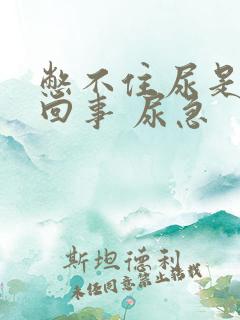 憋不住尿是
回事 尿急
斯坦德利
未经同意禁止搭载